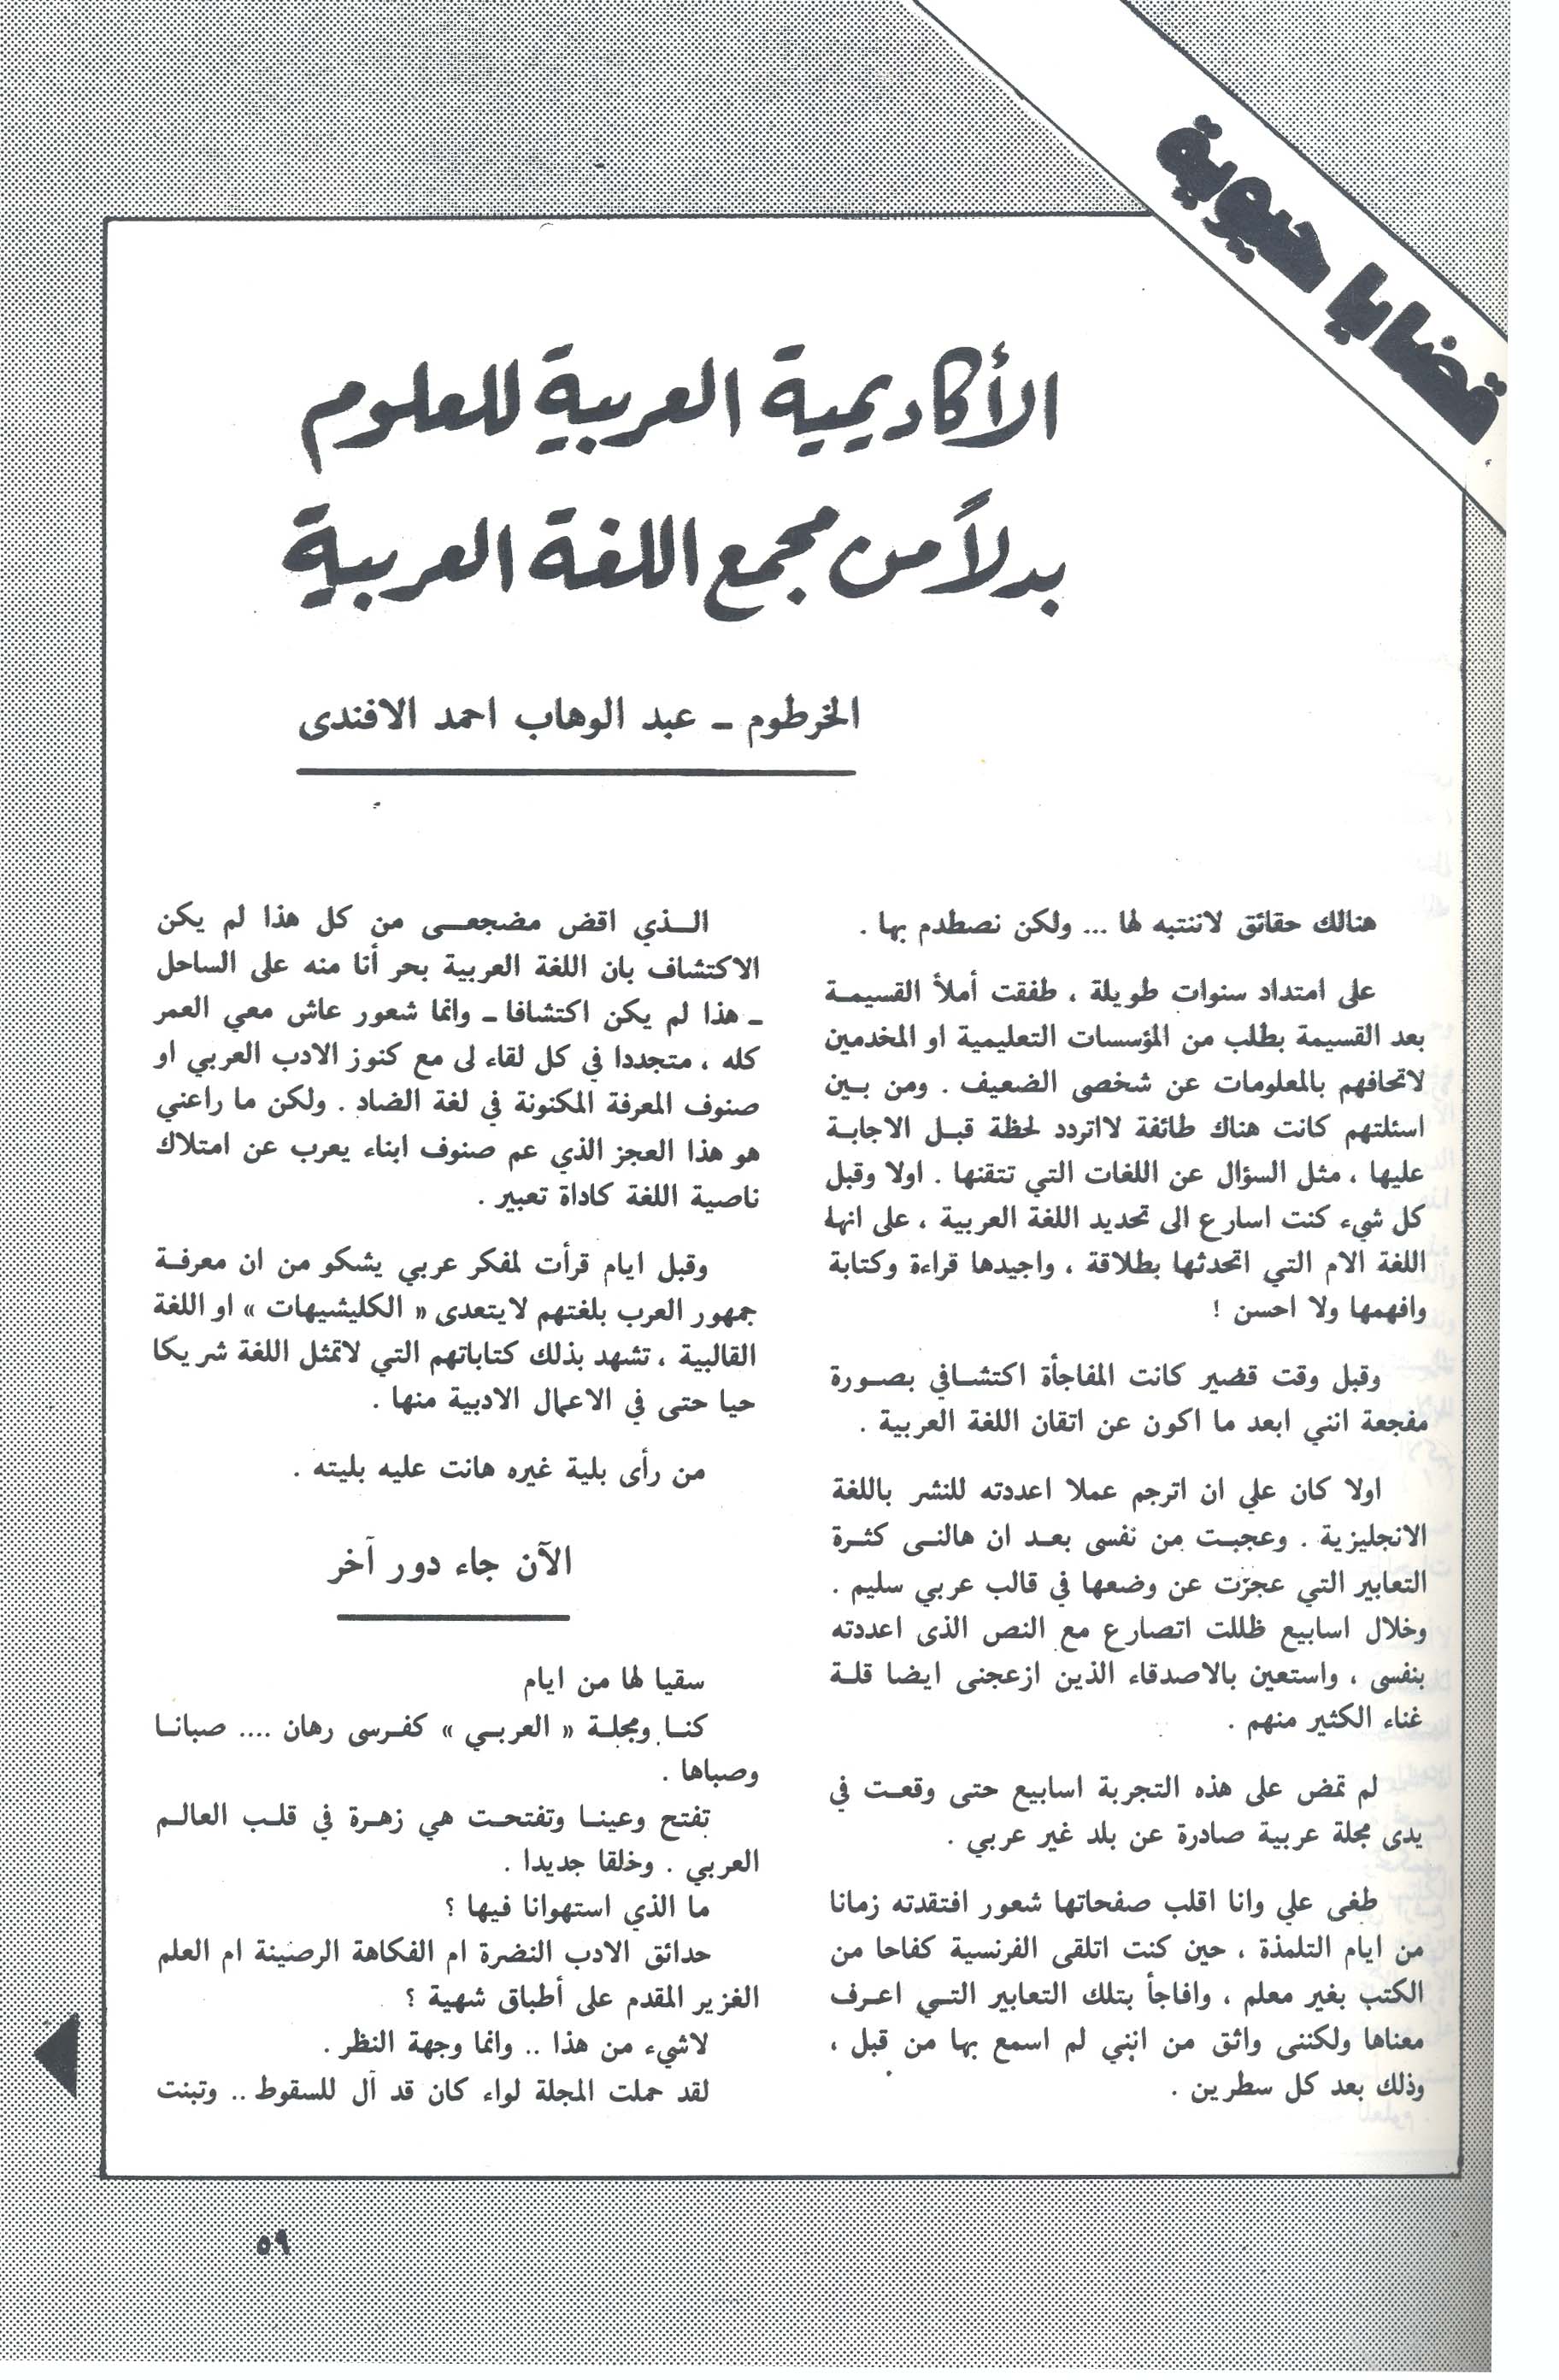 قضايا حيوية
الأكاديمية العربية للعلوم
بدلاً من مجمع اللغة العربية
الخرطوم ــ عبد الوهاب احمد الافندى
هنالك حقائق لاننتبه لها ... ولكن نصطدم بها .
على امتداد سنوات طويلة ، طفقت أملأ القسيمـة
بعد القسيمة بطلب من المؤسسات التعليمية او المخدمين
لاتحافهم بالمعلومات عن شخصى الضعيف . ومن بـين
اسئلتهم كانت هناك طائفة لااتردد لحظة قبـل الاجابـة
عليها ، مثل السؤال عن اللغات التي تتقنها . اولا وقبل
كل شيء كنت اسارع الى تحديد اللغة العربية ، على انها
اللغة الام التي اتحدثها بطلاقة ، واجيدها قراءة وكتابة
وافهمها ولا احسن !
وقبل وقت قصير كانت المفاجأة اكتشـافي بصـورة
مفجعة انني ابعد ما اكون عن اتقان اللغة العربية .
اولا كان علي ان اترجم عملا اعددته للنشر باللغة
الانجليزية . وعجبـت من نفسى بعـد ان هالنـى كثـرة
التعابير التي عجزت عن وضعها في قالب عربي سليم .
وخلال اسابيع ظللت اتصارع مع النص الذى اعددته
بنفسى ، واستعين بالاصدقاء الذين ازعجنى ايضا قلـة
غناء الكثير منهم .
لم تمض على هذه التجربة اسابيع حتى وقعـت في
يدى مجلة عربية صادرة عن بلد غير عربي .
طغى علي وانا اقلب صفحاتها شعور افتقدته زمانا
من ايام التلمذة ، حين كنت اتلقى الفرنسية كفاحا من
الكتب بغير معلم ، وافاجأ بتلك التعابير التـي اعـرف
معناها ولكننى واثق من انني لم اسمع بها من قبل ،
وذلك بعد كل سطرين .
الـذي اقض مضجعـى من كل هذا لم يكن
الاكتشاف بان اللغة العربية بحر أنا منه على الساحل
ــ هذا لم يكن اكتشافا ــ وانما شعور عاش معي العمر
كله ، متجددا في كل لقاء لى مع كنوز الادب العربي او
صنوف المعرفة المكنونة في لغة الضاد . ولكن ما راعني
هو هذا العجز الذي عم صنوف ابناء يعرب عن امتلاك
ناصية اللغة كاداة تعبير .
وقبل ايام قرأت لمفكر عربي يشكو من ان معرفـة
جمهور العرب بلغتهم لايتعدى « الكليشيهات » او اللغة
القالبية ، تشهد بذلك كتاباتهم التي لاتمثل اللغة شريكا
حيا حتى في الاعمال الادبية منها .
من رأى بلية غيره هانت عليه بليته .
الآن جاء دور آخر
سقيا لها من ايام
كنـا ومجلـة « العربـي » كفـرسى رهان .... صبانـا
وصباها .
تفتح وعينـا وتفتحـت هي زهـرة في قلـب العالـم
العربي . وخلقا جديدا .
ما الذي استهوانا فيها ؟
حدائق الادب النضرة ام الفكاهة الرصينة ام العلم
الغزير المقدم على أطباق شهية ؟
لاشيء من هذا .. وانما وجهة النظر .
لقد حملت المجلة لواء كان قد آل للسقوط .. وتبنت
٥٩